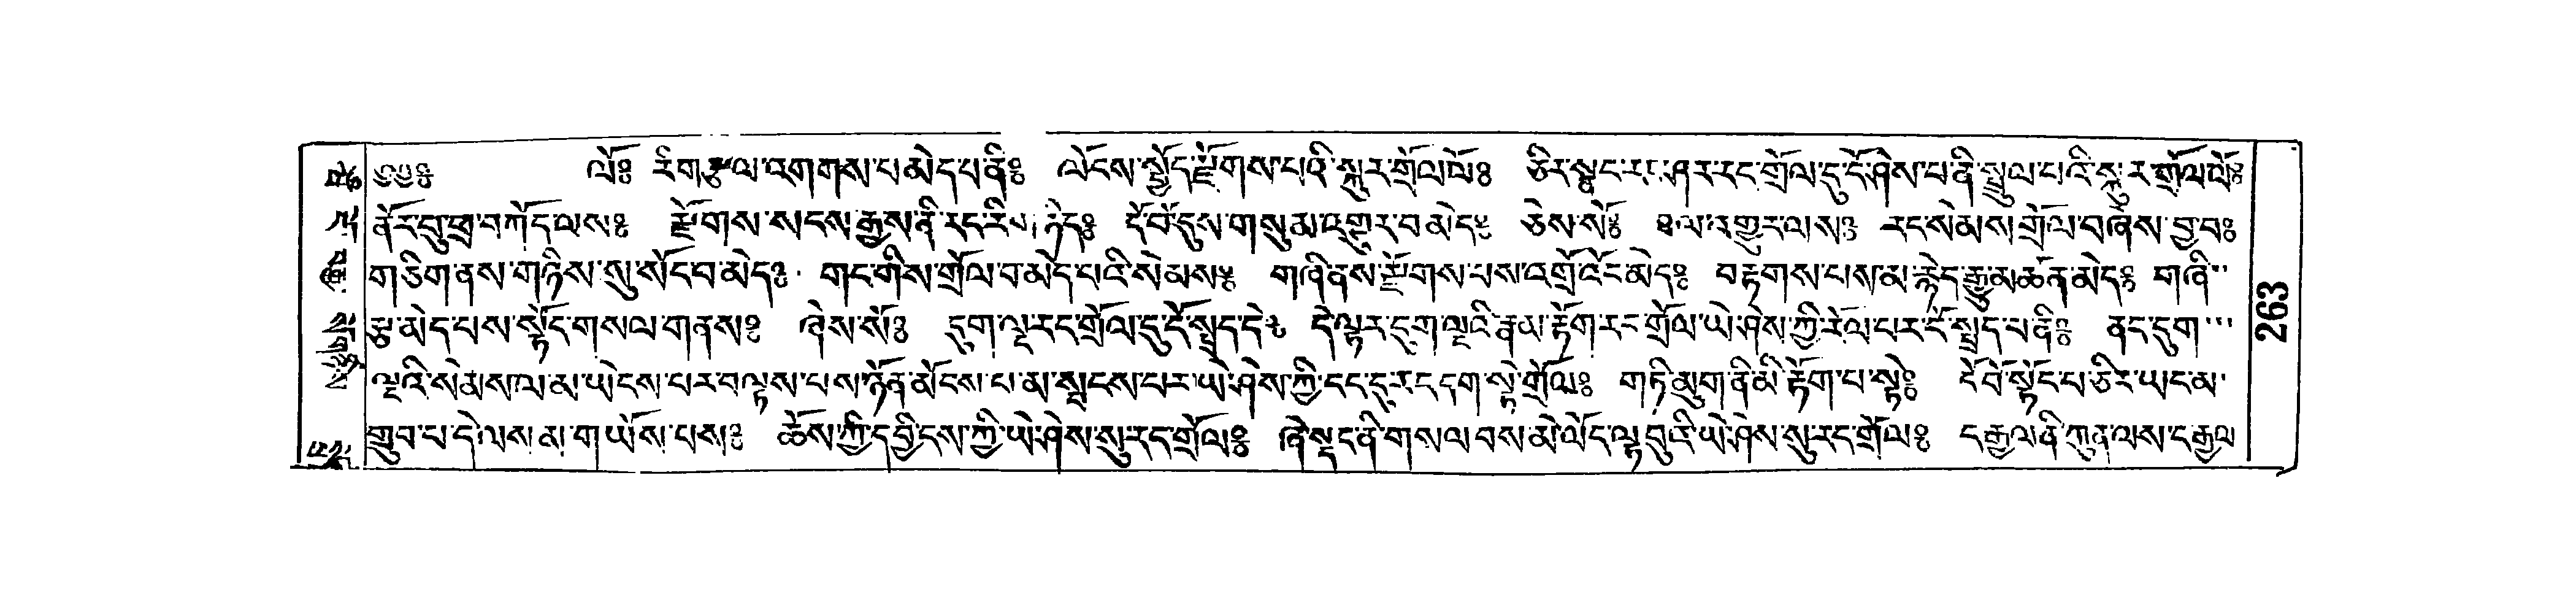 ༄༅༔ ལོ༔ རིག་རྩལ་འགགས་པ་མེད་པ་ནི༔ ལོངས་སྤྱོད་རྫོགས་པའི་སྐུར་གྲོལ་ལོ༔ ཅིར་སྣང་རང་ཤར་རང་གྲོལ་དུ་ངོ་ཤེས་པ་ནི་སྤྲུལ་པའི་སྐུར་གྲོལ་ལོ༔
ནོར་བུ་ཕྲ་བཀོད་ལས༔ རྫོགས་སངས་རྒྱས་ནི་རང་རིག་ཉིད༔ ངོ་བོ་དུས་གསུམ་འགྱུར་བ་མེད༔ ཅེས་སོ༔ ཐལ་འགྱུར་ལས༔ རང་སེམས་གྲོལ་བ་ཞེས་བྱ་བ༔
གཅིག་ནས་གཉིས་སུ་སོང་བ་མེད༔ གང་གིས་གྲོལ་བ་མེད་པའི་སེམས༔ གཞི་ནས་རྫོགས་པས་འགྲོ་འོང་མེད༔ བརྟགས་པས་མ་རྙེད་རྒྱུ་མཚན་མེད༔ གཞི་
རྩ་མེད་པས་སྟོང་གསལ་གནས༔ ཞེས་སོ༔ དུག་ལྔ་རང་གྲོལ་དུ་ངོ་སྤྲད་དེ༔ དེ་ལྟར་དུག་ལྔའི་རྣམ་རྟོག་རང་གྲོལ་ཡེ་ཤེས་ཀྱི་རོལ་པར་ངོ་སྤྲད་པ་ནི༔ ནད་དུག་
ལྔའི་སེམས་ལ་མ་ཡེངས་པར་བལྟས་པས་ཉོན་མོངས་པ་མ་སྤངས་པར་ཡེ་ཤེས་ཀྱི་དང་དུ་རང་དག་སྟེ་གྲོལ༔ གཏི་མུག་ནི་མི་རྟོག་པ་སྟེ༔ ངོ་བོ་སྟོང་པ་ཅིར་ཡང་མ་
གྲུབ་པ་དེ་ལས་མ་གཡོས་པས༔ ཆོས་ཀྱི་དབྱིངས་ཀྱི་ཡེ་ཤེས་སུ་རང་གྲོལ༔ ཞེ་སྡང་ནི་གསལ་བས་མེ་ལོང་ལྟ་བུའི་ཡེ་ཤེས་སུ་རང་གྲོལ༔ ང་རྒྱལ་ནི་ཀུན་ལས་ང་རྒྱལ